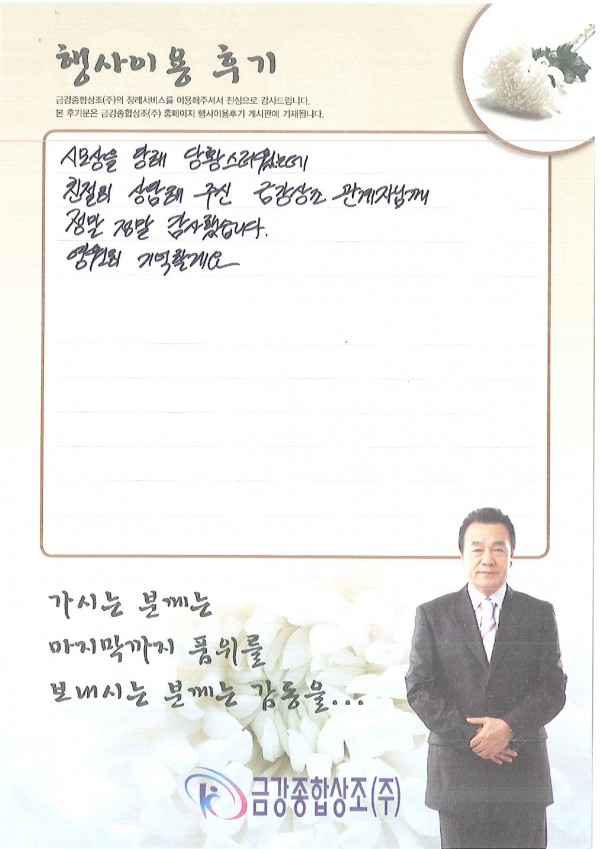 행사이용 후기
금강종합상조(주)의 장례서비스를 이용해주셔서 진심으로 감사드립니다.
본 후기문은 금강종합상조(주) 홈페이지 행사이용후기 게시판에 기재됩니다.
시모상을 당해 당황스러웠는데
친절히 상담해 주신 금강상조 관계자님께
정말 정말 감사했습니다.
영원히 기억할게요
가시는 분께는
마지막까지 품위를
보내시는 분께는 감동을...
금강종합상조(주)